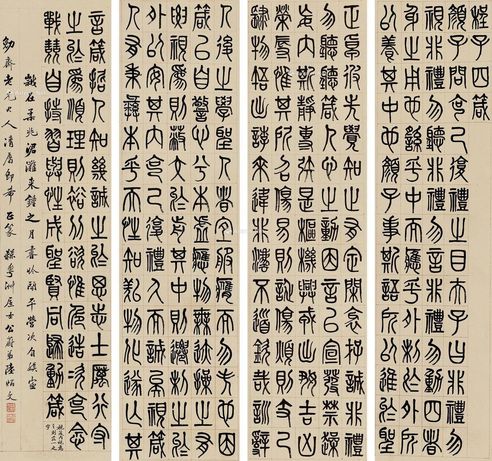 程子四箴
顏子問克己復禮之目夫子曰非禮勿
視非禮勿聽非禮勿言非禮勿動四者
身之用也由乎中而應乎外制於外所
以養其中也顏子事斯語所以進於聖
人後之學聖人者宜服膺而勿失也因
箴以自警心兮本虛應物無迹操之有要
視為之則蔽交於前其中則遷制之於
外以安其內克己復禮久而誠矣視箴
人有秉彝本乎天性知誘物化遂亡其
正卓彼先覺知止有定閑邪存誠非禮
勿聽聽箴人心之動因言以宣發禁躁
妄內斯靜專矧是樞機興戎出好吉凶
榮辱惟其所召傷易則誕傷煩則支己
肆物忤出悖來違非法不道欽哉訓辭
言箴哲人知幾誠之於思志士厲行守
之於為順理則裕從欲惟危造次克念
戰兢自持習與性成聖賢同歸動箴
歲在柔兆涒灘夾鐘之月書於
幼齋老兄大人清屬即希正篆